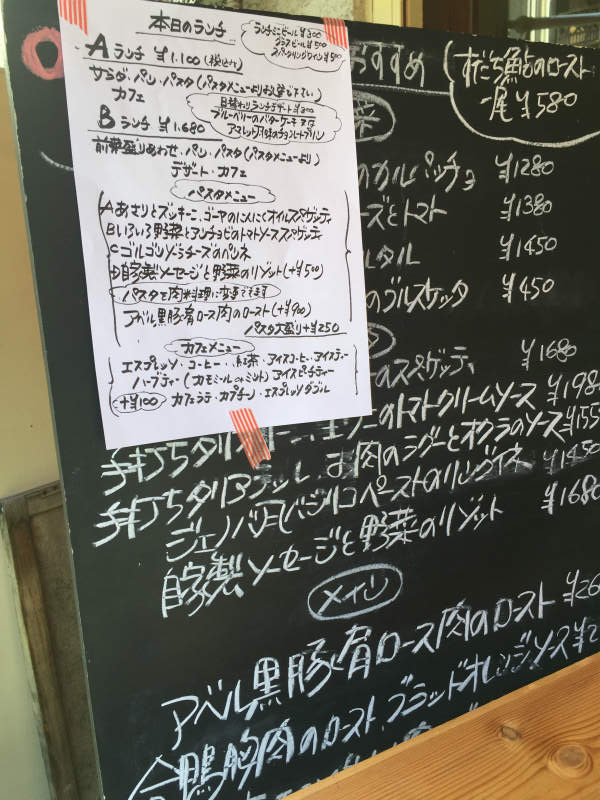 本日のランチ
ランチミニビール ¥300
グラスビール ¥500
スパークリングワイン ¥500
Aランチ ¥1.100 (税込み)
サラダ・パン・パスタ(パスタメニューよりお選び下さい)
カフェ
日替わりランチデザート ¥300
ブルーベリーのバターケーキ 又は
アマレット風味のチョコレートプリン
Bランチ ¥1.680
前菜盛りあわせ・パン・パスタ(パスタメニューより)
デザート・カフェ
パスタメニュー
Aあさりとズッキーニ、ゴーヤのにんにくオイルスパゲッティ
Bいろいろ野菜とアンチョビのトマトソーススパゲッティ
Cゴルゴンゾーラチーズのペンネ
D自家製ソーセージと野菜のリゾット(+¥500)
パスタを肉料理に変更できます
アベル黒豚肩ロース肉のロースト(+¥900)
パスタ大盛り+¥250
カフェメニュー
エスプレッソ・コーヒー・紅茶・アイスコーヒー・アイスティー
ハーブティー(カモミール or ミント) アイスピーチティー
+¥100 カフェラテ・カプチーノ・エスプレッソダブル
おすすめ
稚鮎のロースト
一尾 ¥580
菜
のカルパッチョ ¥1280
ーズとトマト ¥1380
タルタル ¥1450
のブルスケッタ ¥450
のスパゲッティ ¥1680
のトマトクリームソース ¥198
手打ちタリアテッレ お肉のラグーとオクラのソース ¥155
ジェノバ風バジリコペーストのリングイネ ¥1450
自家製ソーセージと野菜のリゾット ¥1680
メイン
アベル黒豚肩ロース肉のロースト ¥26
鴨胸肉のロースト、ブラッドオレンジソース ¥2